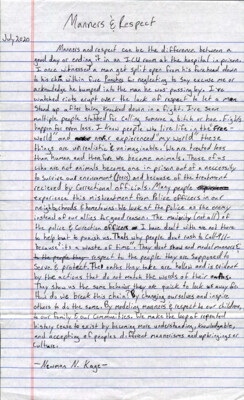 Manners & Respect
July 2020
Manners and respect can be the difference between a
good day or ending it in an ICU room at the hospital in prison.
I once witnessed a man get split open from his forehead down
to his chin within five for neglecting to say excuse me or
acknowledge he bumped into the man he was passing by. I've
watched riots erupt over the lack of respect to let a man
stand up after being knocked down in a fight. I've seen
multiple people stabbed for calling someone a bitch or hoe. Fights
happen for even less. I know people who live life in the free
world and experienced "my world" these
things are unrealistic & unimaginable. We are treated less
than human and therefore we become animals. Those of us
who are not animals become one in prison out of a necessity
to survive and because of the treatment
recieved by Correctional officials. Many people
experience this mistreatment from Police officers in our
neighborhoods & hometowns. We look at the Police as the enemy
instead of our allies for good reason. The majority (not all) of
the police & Correction officers I have dealt with are not there
to help but to punish us. That's why people don't call
because "it's a waste of time." They don't and model manners &
respect to the people they are supposed to
serve & protect. The oaths they take are and is evident
by the actions that do not match the words of their oaths.
They show us the same behavior they are quick to lock us away for.
How do we break this chain? By changing ourselves and inspire
others to do the same. By modeling manners & respect to our children,
to our family & our communities. We make the loop of repeated
history cease to exist by becoming more understanding, knowledgable,
and accepting of peoples different mannerisms and upbringings or
culture.
- Newman N. Kage -